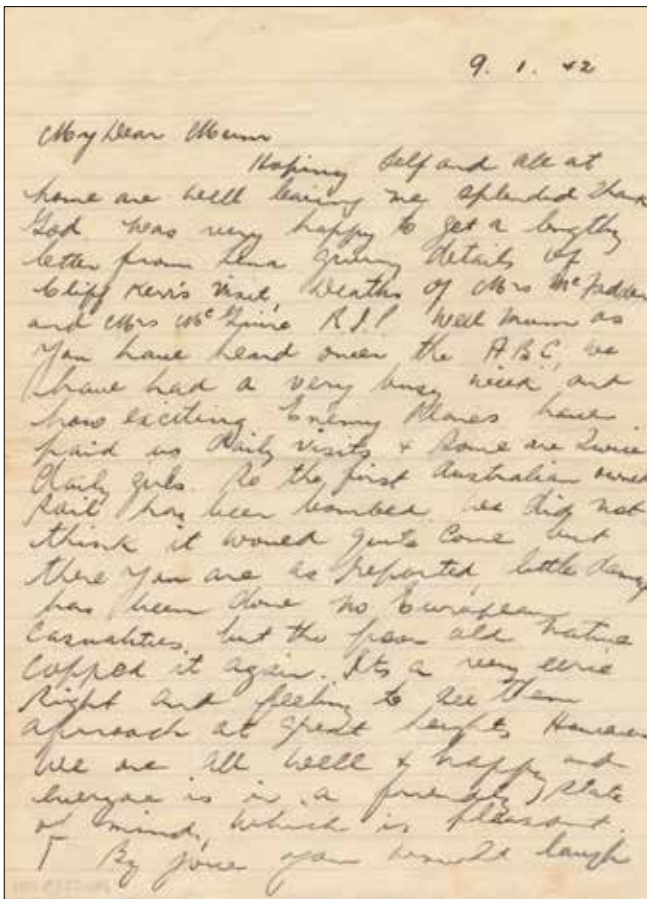 9. 1. 42
My Dear Mum
Hoping Self and all at
home are well leaving me splendid thank
God. was very happy to get a lengthy
letter from Lena giving details of
Cliff Kerr's visit, Deaths of Mrs McFadden
and Mrs McGuire R.I.P. Well Mum as
you have heard over the ABC, we
have had a very busy week and
how exciting Enemy Planes have
paid us daily visits & some are twice
daily So the first Australian owned
soil has been bombed. We did not
think it would quite come but
there you are as reported, little damage
has been done no European
Casualities, but the poor old native
copped it again. Its a very eerie
sight and feeling to see them
approach at great heights However
we are all well & happy and
everyone is in a friendly state
of mind, which is pleasant.
By jove you would laugh